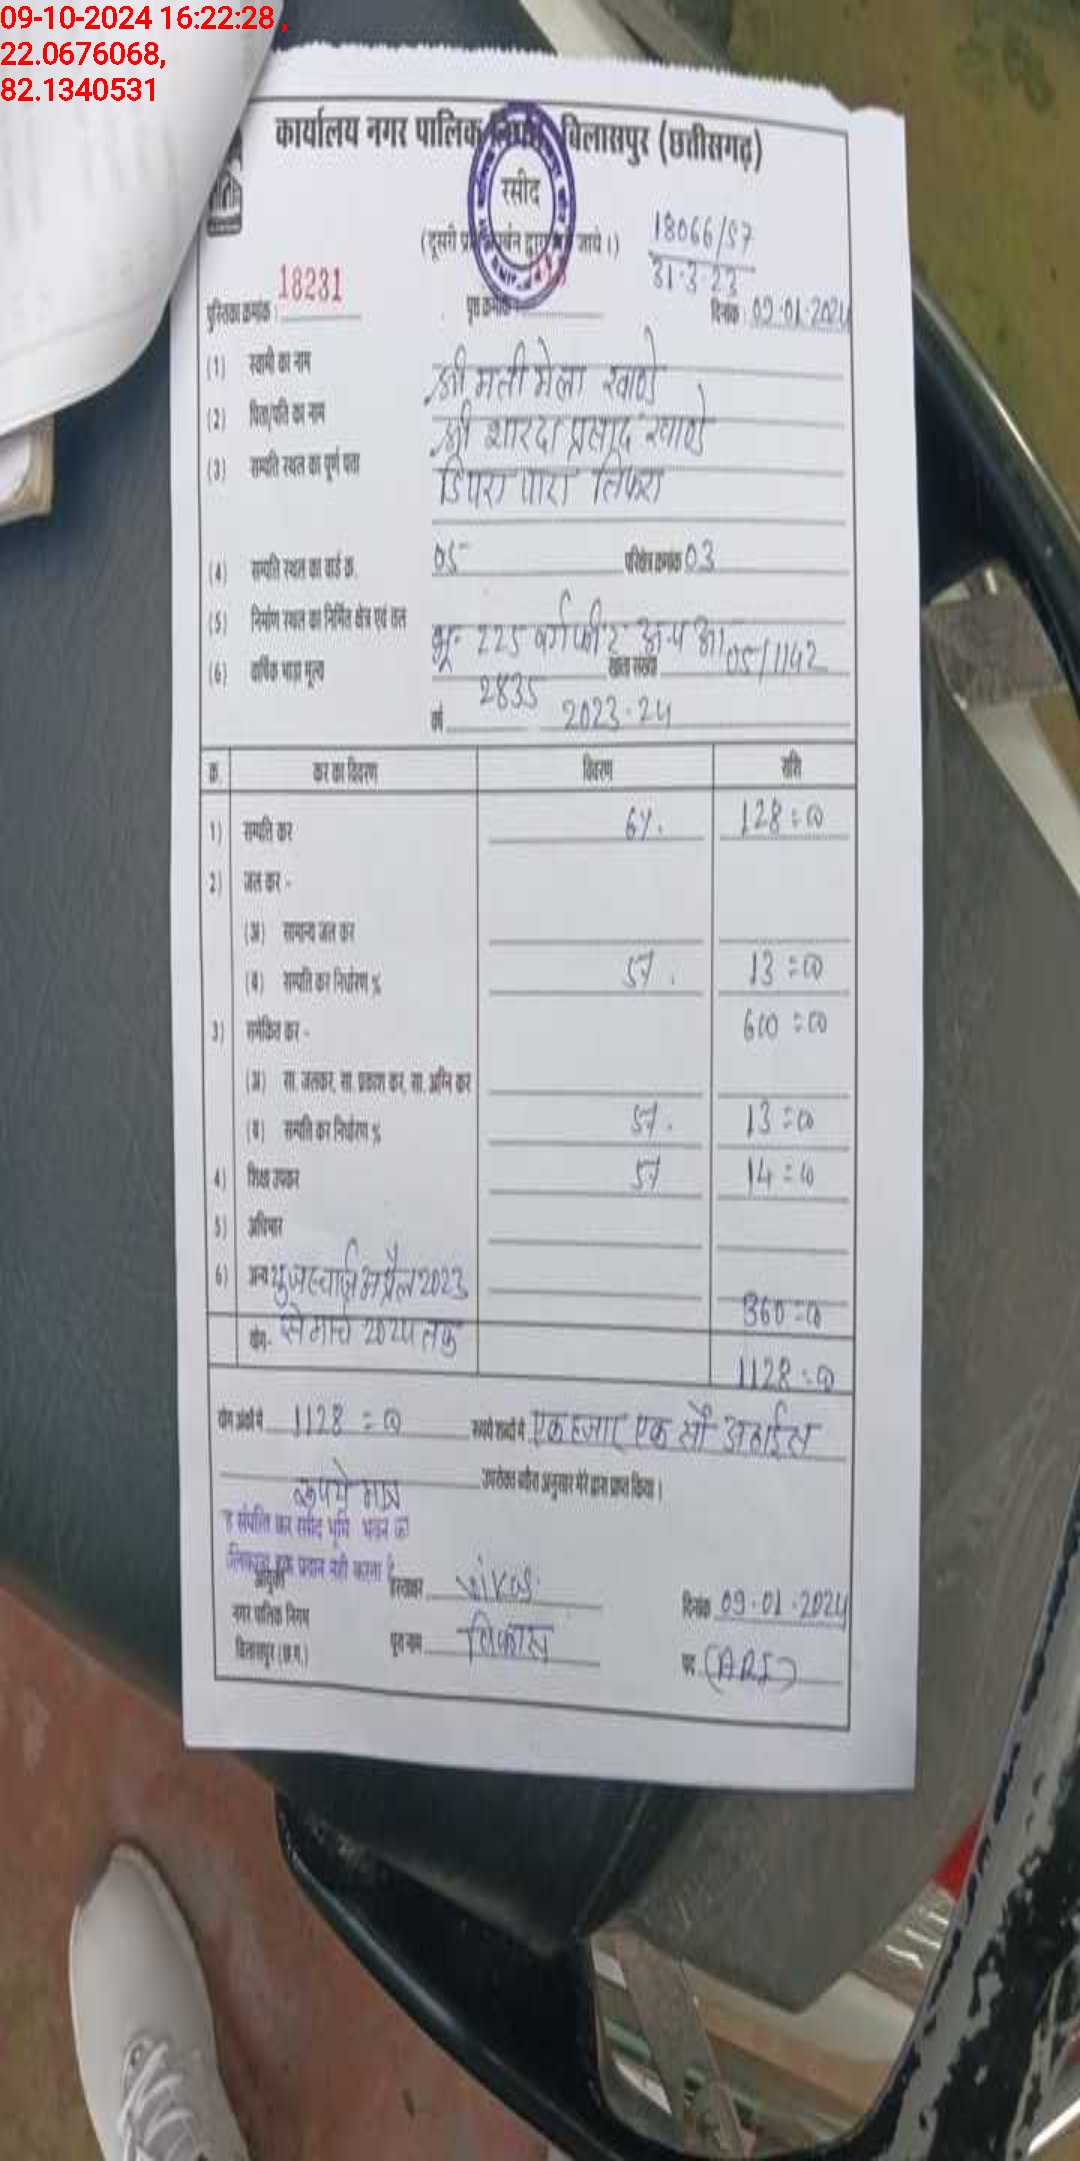 09-10-2024 16:22:28 ,
22.0676068,
82.1340531
कार्यालय नगर पालिक निगम, बिलासपुर (छत्तीसगढ़)
रसीद
(दूसरी द्वारा जाये।)
18066/57
31-3-23
पुस्तिका क्रमांक : 18231 पृष्ठ क्रमांक दिनांक : 09-01-2024
(1) स्वामी का नाम श्री मती मेला खाण्डे
(2) पिता/पति का नाम श्री शारदा प्रसाद खाण्डे
(3) सम्पत्ति स्थल का पूर्ण पता डिपरा पारा तिफरा
(4) सम्पत्ति स्थल का वार्ड क्र. 05 परिक्षेत्र क्रमांक 03
(5) निर्माण स्थल का निर्मित क्षेत्र एवं तल भू- 225 वर्गफीट
(6) वार्षिक भाड़ा मूल्य 2835 खाता संख्या 05/1142
वर्ष 2023-24
क्र. कर का विवरण विवरण राशि
1) सम्पत्ति कर 6%. 128=00
2) जल कर -
(अ) सामान्य जल कर
(ब) सम्पत्ति कर निर्धारण % 5%. 13=00
3) समेकित कर - 600=00
(अ) सा. जलकर, सा. प्रकाश कर, सा. अग्नि कर
(ब) सम्पत्ति कर निर्धारण % 5%. 13=00
4) शिक्षा उपकर 5% 14=00
5) अधिभार
6) अन्य युजरचार्ज अप्रैल 2023
से मार्च 2024 तक 360=00
योग- 1128=00
योग अंकों में 1128=00 रूपये शब्दों में एक हजार एक सौ अठाईस
रूपये मात्र उपरोक्त ब्यौरा अनुसार मेरे द्वारा प्राप्त किया।
संपत्ति कर रसीद भूमि भवन का
हक प्रदान नही करता है
आयुक्त हस्ताक्षर vikas दिनांक 09-01-2024
नगर पालिक निगम
बिलासपुर (छ.ग.) पूरा नाम विकास पद (ARI)